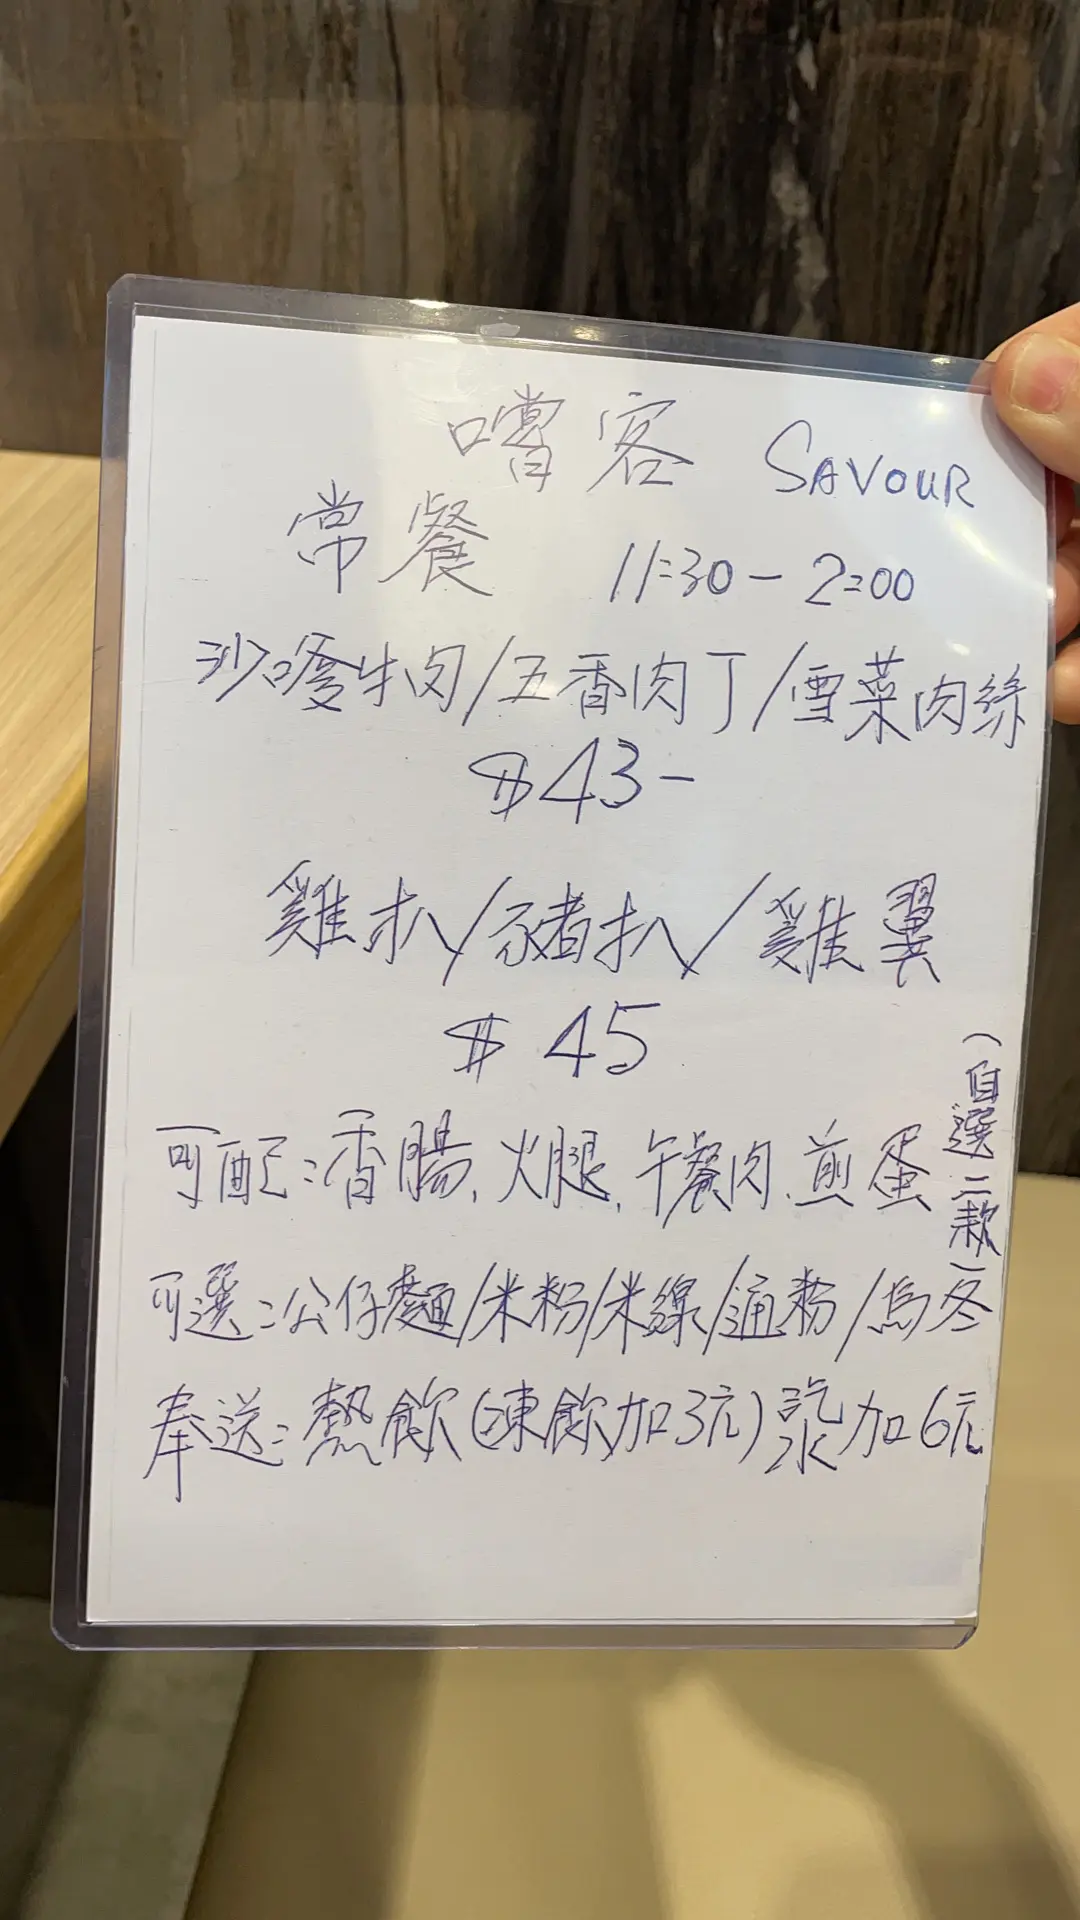 嚐客 SAVOUR
常餐 11:30-2:00
沙嗲牛肉/五香肉丁/雪菜肉絲
$43-
雞扒/豬扒/雞翼
$45
可配:香腸、火腿、午餐肉、煎蛋(自選二款)
可選:公仔麵/米粉/米線/通粉/烏冬
奉送:熱飲(凍飲加3元)汽水加6元